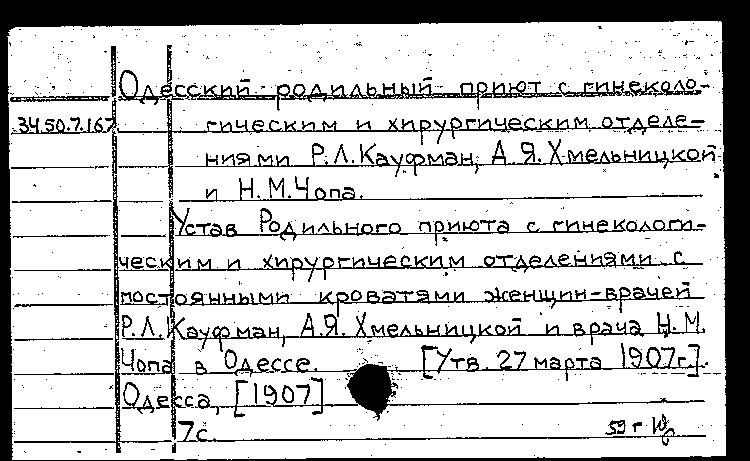 Одесский родильный приют с гинеколо-
34.50.7.167
гическим и хирургическим отделе-
ниями Р.Л.Кауфман, А.Я.Хмельницкой
и Н.М.Чопа.
Устав Родильного приюта с гинекологи-
ческим и хирургическим отделениями с
постоянными кроватями женщин-врачей
Р.Л.Кауфман, А.Я.Хмельницкой и врача Н.М.
Чопа в Одессе. [Утв. 27 марта 1907г.].
Одесса, [1907]
7с.
59 г